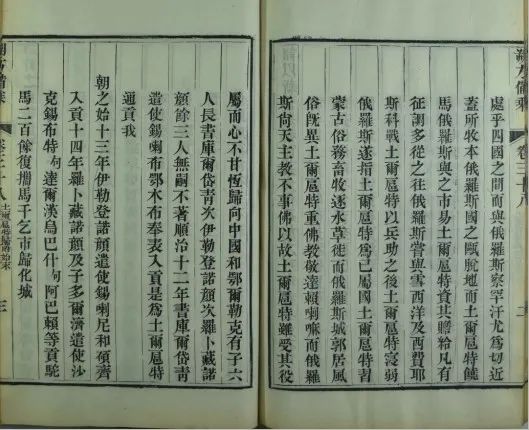 朔方備乘
卷三十八
處乎四國之間而與俄羅斯察罕汗尤爲切近
蓋所牧本俄羅斯國之甌脫壖地而土爾扈特饒
馬俄羅斯與之市易土爾扈特資其贈給凡有
征調多從之往俄羅斯嘗與雪西洋及西費耶
斯科戰土爾扈特以兵助之後土爾扈特寖弱
俄羅斯遂指土爾扈特爲已屬國土爾扈特習
蒙古俗務畜牧逐水草徙而俄羅斯城郭居風
俗旣異土爾扈特重佛敎敬達賴喇嘛而俄羅
斯尙天主敎不事佛以故土爾扈特雖受其役
屬而心不甘恆歸向中國和鄂爾勒克有子六
人長書庫爾岱靑次伊勒登諾顏次羅卜藏諾
顏餘三人無嗣不著順治十二年書庫爾岱靑
遣使錫喇布鄂木布奉表入貢是爲土爾扈特
通貢我
朝之始十三年伊勒登諾顏遣使錫喇尼和碩齊
入貢十四年羅卜藏諾顏及子多爾濟遣使沙
克錫布特達爾漢烏巴什阿巴賴等貢駝
馬二百餘復攜馬千乞市歸化城
朔方備乘
卷三十八 土爾扈特歸附始末
三